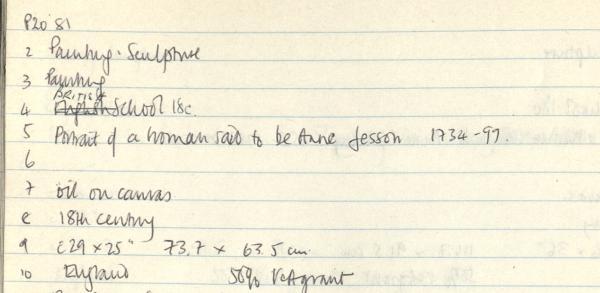 P20'81
2 Painting · Sculpture
3 Painting
BRITISH
4 English School 18c.
5 Portrait of a woman said to be Anne Jesson 1734-97.
6
7 oil on canvas
8 18th century
9 c29 x 25" 73.7 x 63.5 cm.
10 England 50% V&A grant